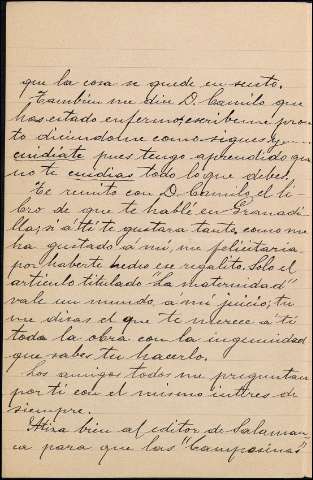 que la cosa se quede en susto.
También me dice D. Camilo que
has estado enfermo; escribeme pron-
to diciendome como sigues y....
cuidáte pues tengo aprendido que
no te cuidas todo lo que debes.
Te remito con D. Camilo el li-
bro de que te hablé en Granadi-
lla; si á tí te gustara tanto como me
ha gustado á mí, me felicitaria
por haberte hecho ese regalito. Solo el
artículo titulado "La maternidad"
vale un mundo, á mi juicio; tu
me diras el que te merece á tí
toda la obra con la ingenuidad
que sabes tu hacerlo.
Los amigos todos me preguntan
por tí con el mismo interes de
siempre.
Atiza bien al editor de Salaman-
ca para que las "Campesinas"